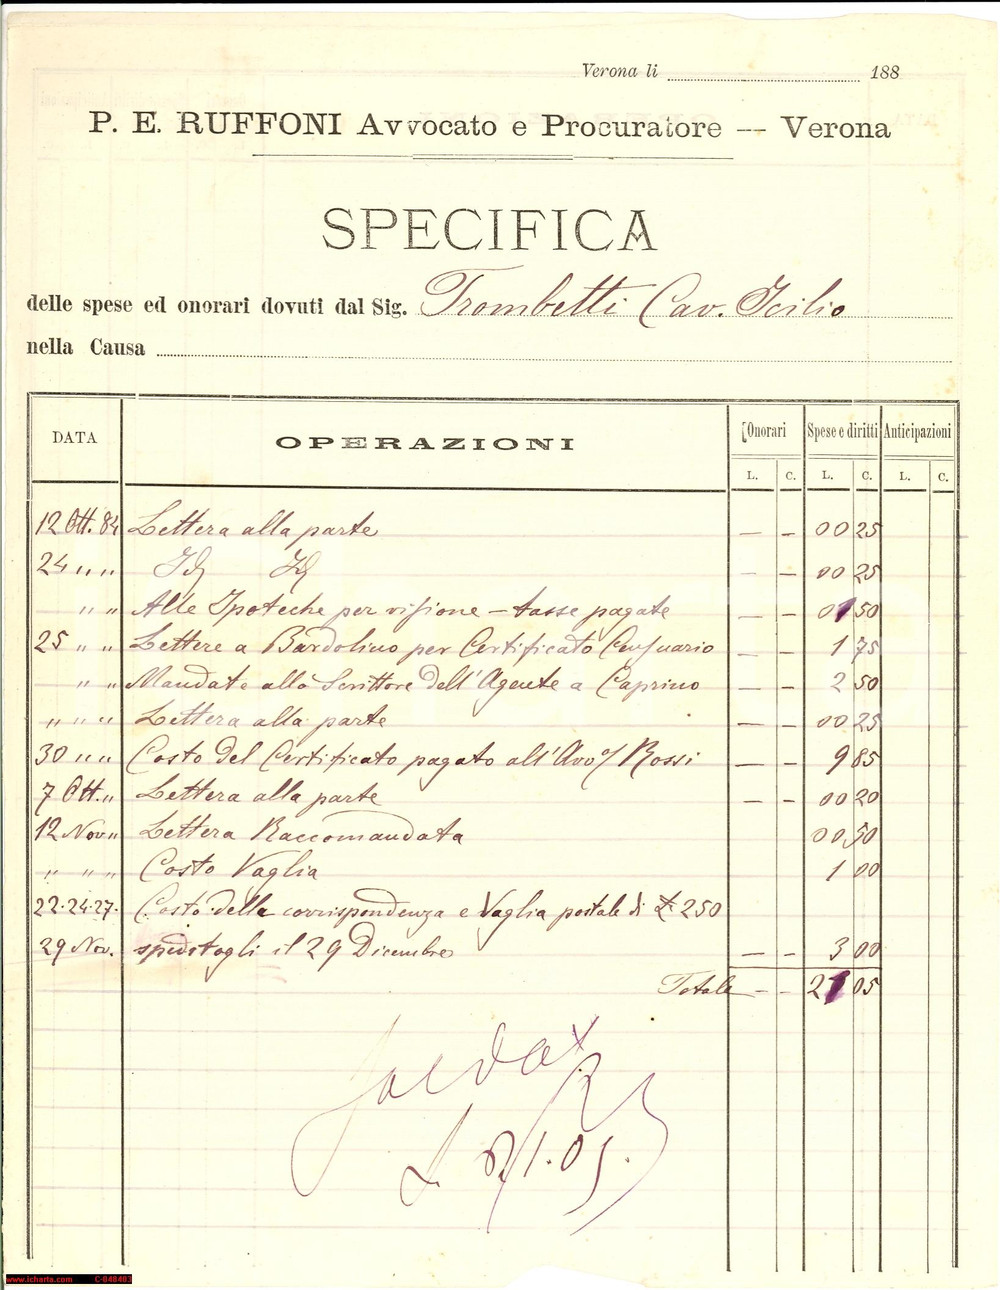 Verona li 188
P. E. RUFFONI Avvocato e Procuratore — Verona
SPECIFICA
delle spese ed onorari dovuti dal Sig. Trombetti Cav. Icilio
nella Causa
DATA OPERAZIONI Onorari Spese e diritti Anticipazioni
L. C. L. C. L. C.
12 Ott. 84 Lettera alla parte — – 00 25
24 " " Id Id — – 00 25
" " Alle Ipoteche per visione – tasse pagate — – 01 50
25 " " Lettere a Bardolino per Certificato Censuario — – 1 75
" " Mandate allo Scrittore dell'Agente a Caprino — – 2 50
" " " Lettera alla parte — – 00 25
30 " " Costo del Certificato pagato all'Avv/ Rossi — – 9 85
7 Ott. " Lettera alla parte — – 00 20
12 Nov " Lettera Raccomandata 00 50
" " " Costo Vaglia 1 00
22-24-27- Costo della corrispondenza e Vaglia postale di £ 250
29 Nov. speditogli il 29 Dicembre — – 3 00
Totale – – 21 05
L. 21.05.
www.icharta.com C-048403